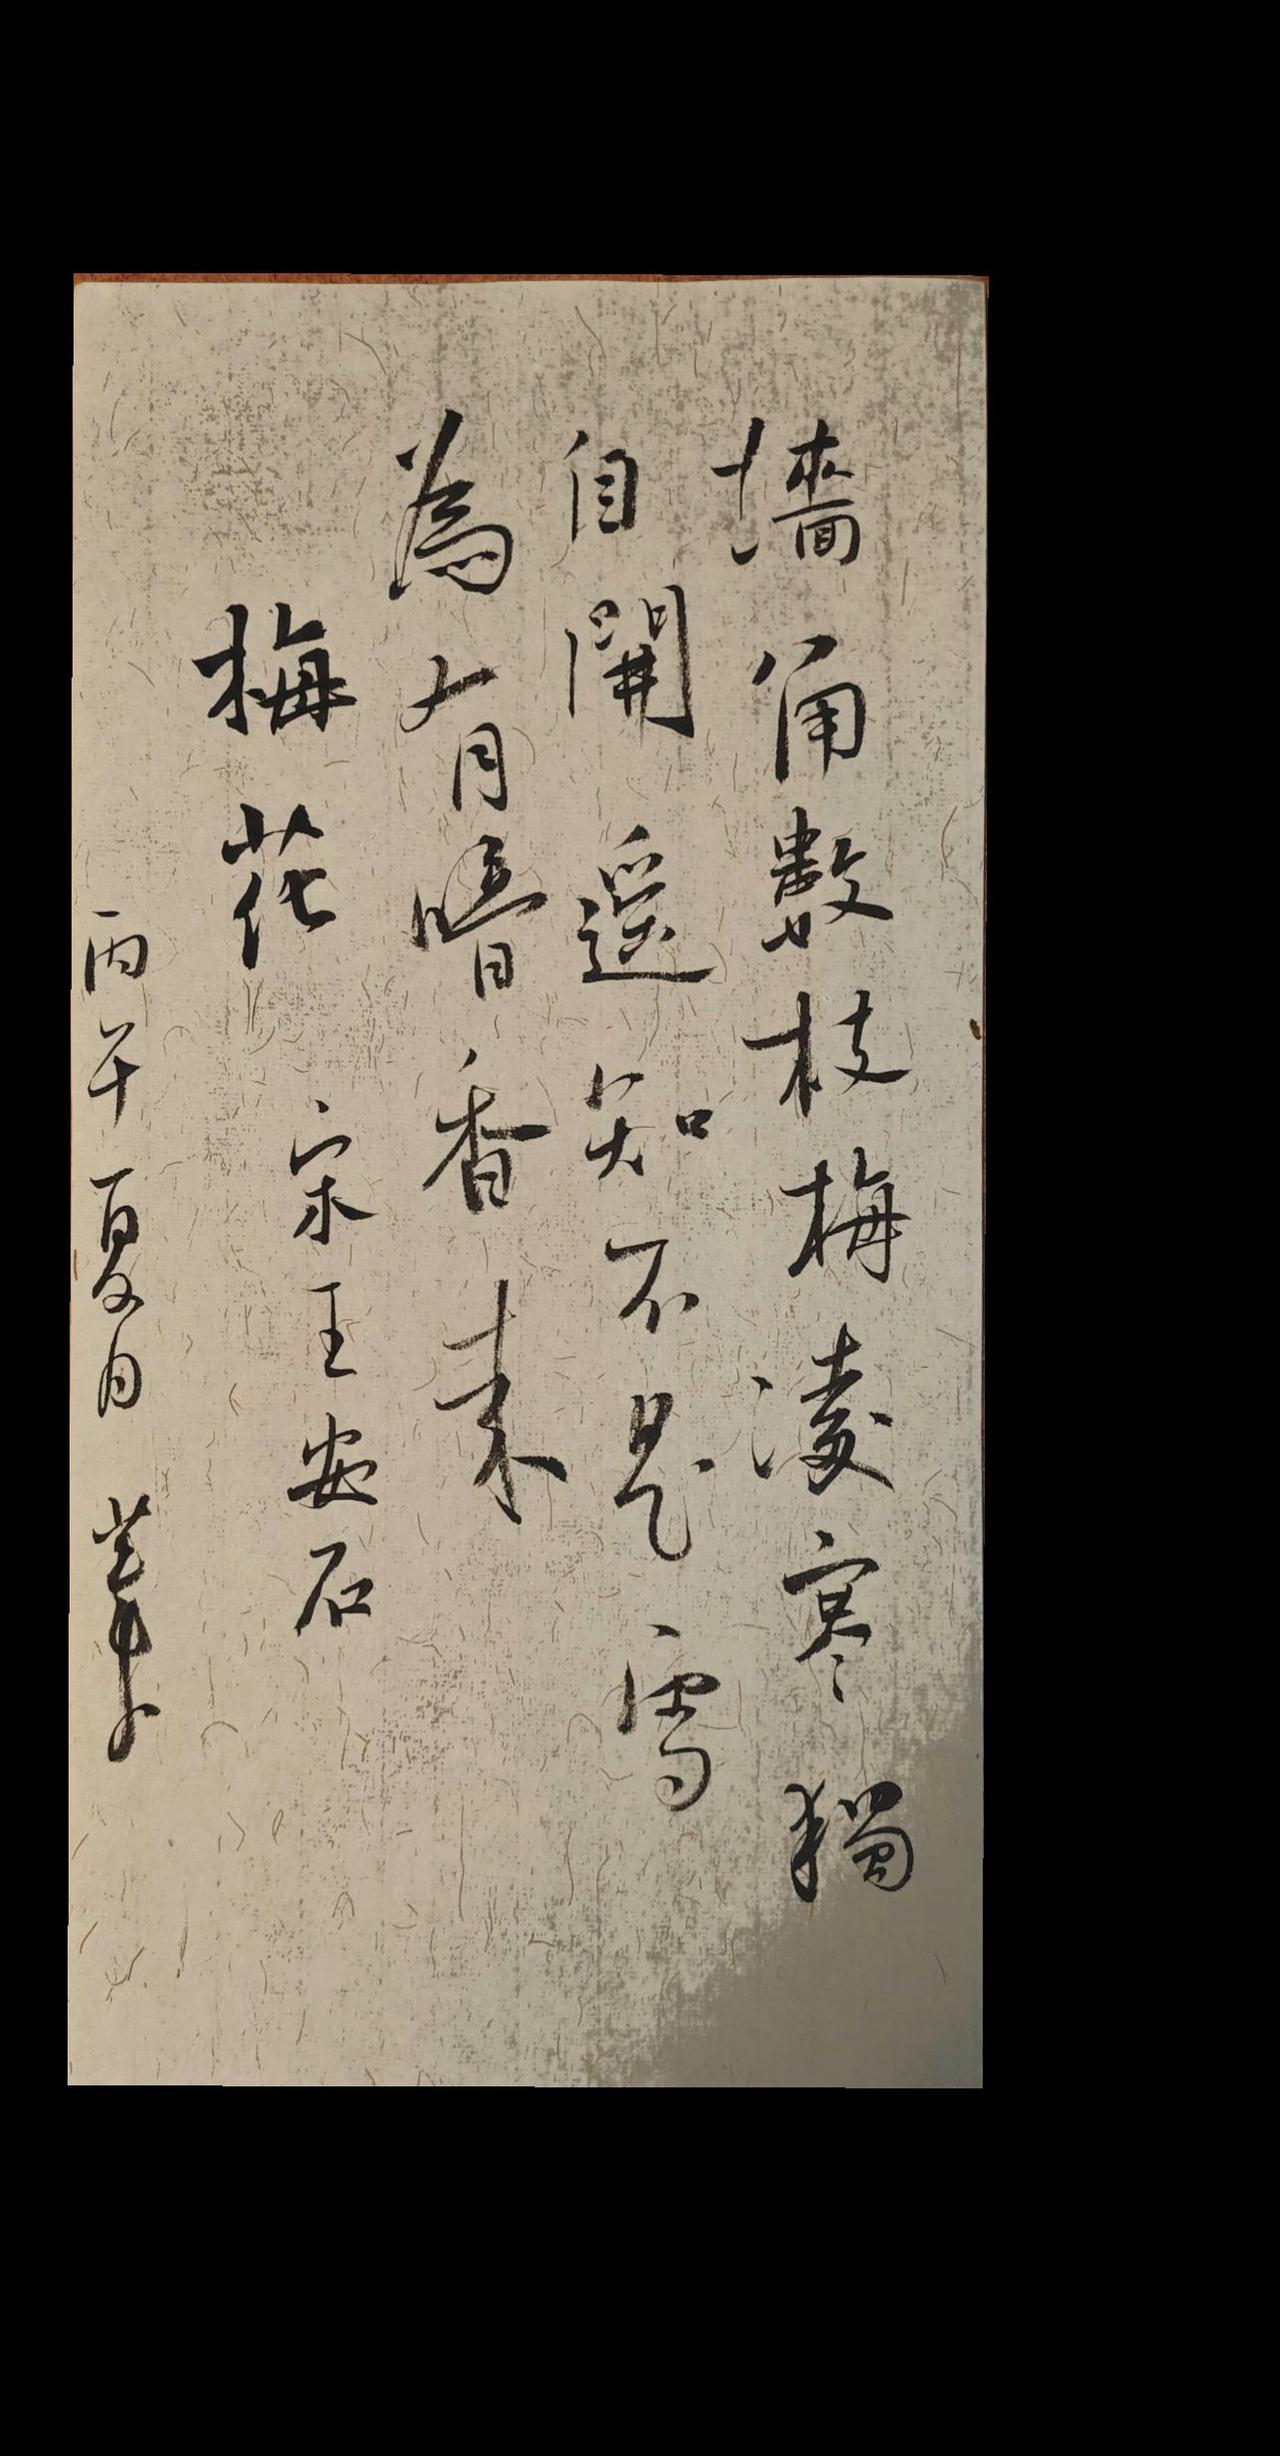 墻角數枝梅凌寒獨
自開遥知不是雪
為有暗香来
梅花
宋王安石
丙午夏月